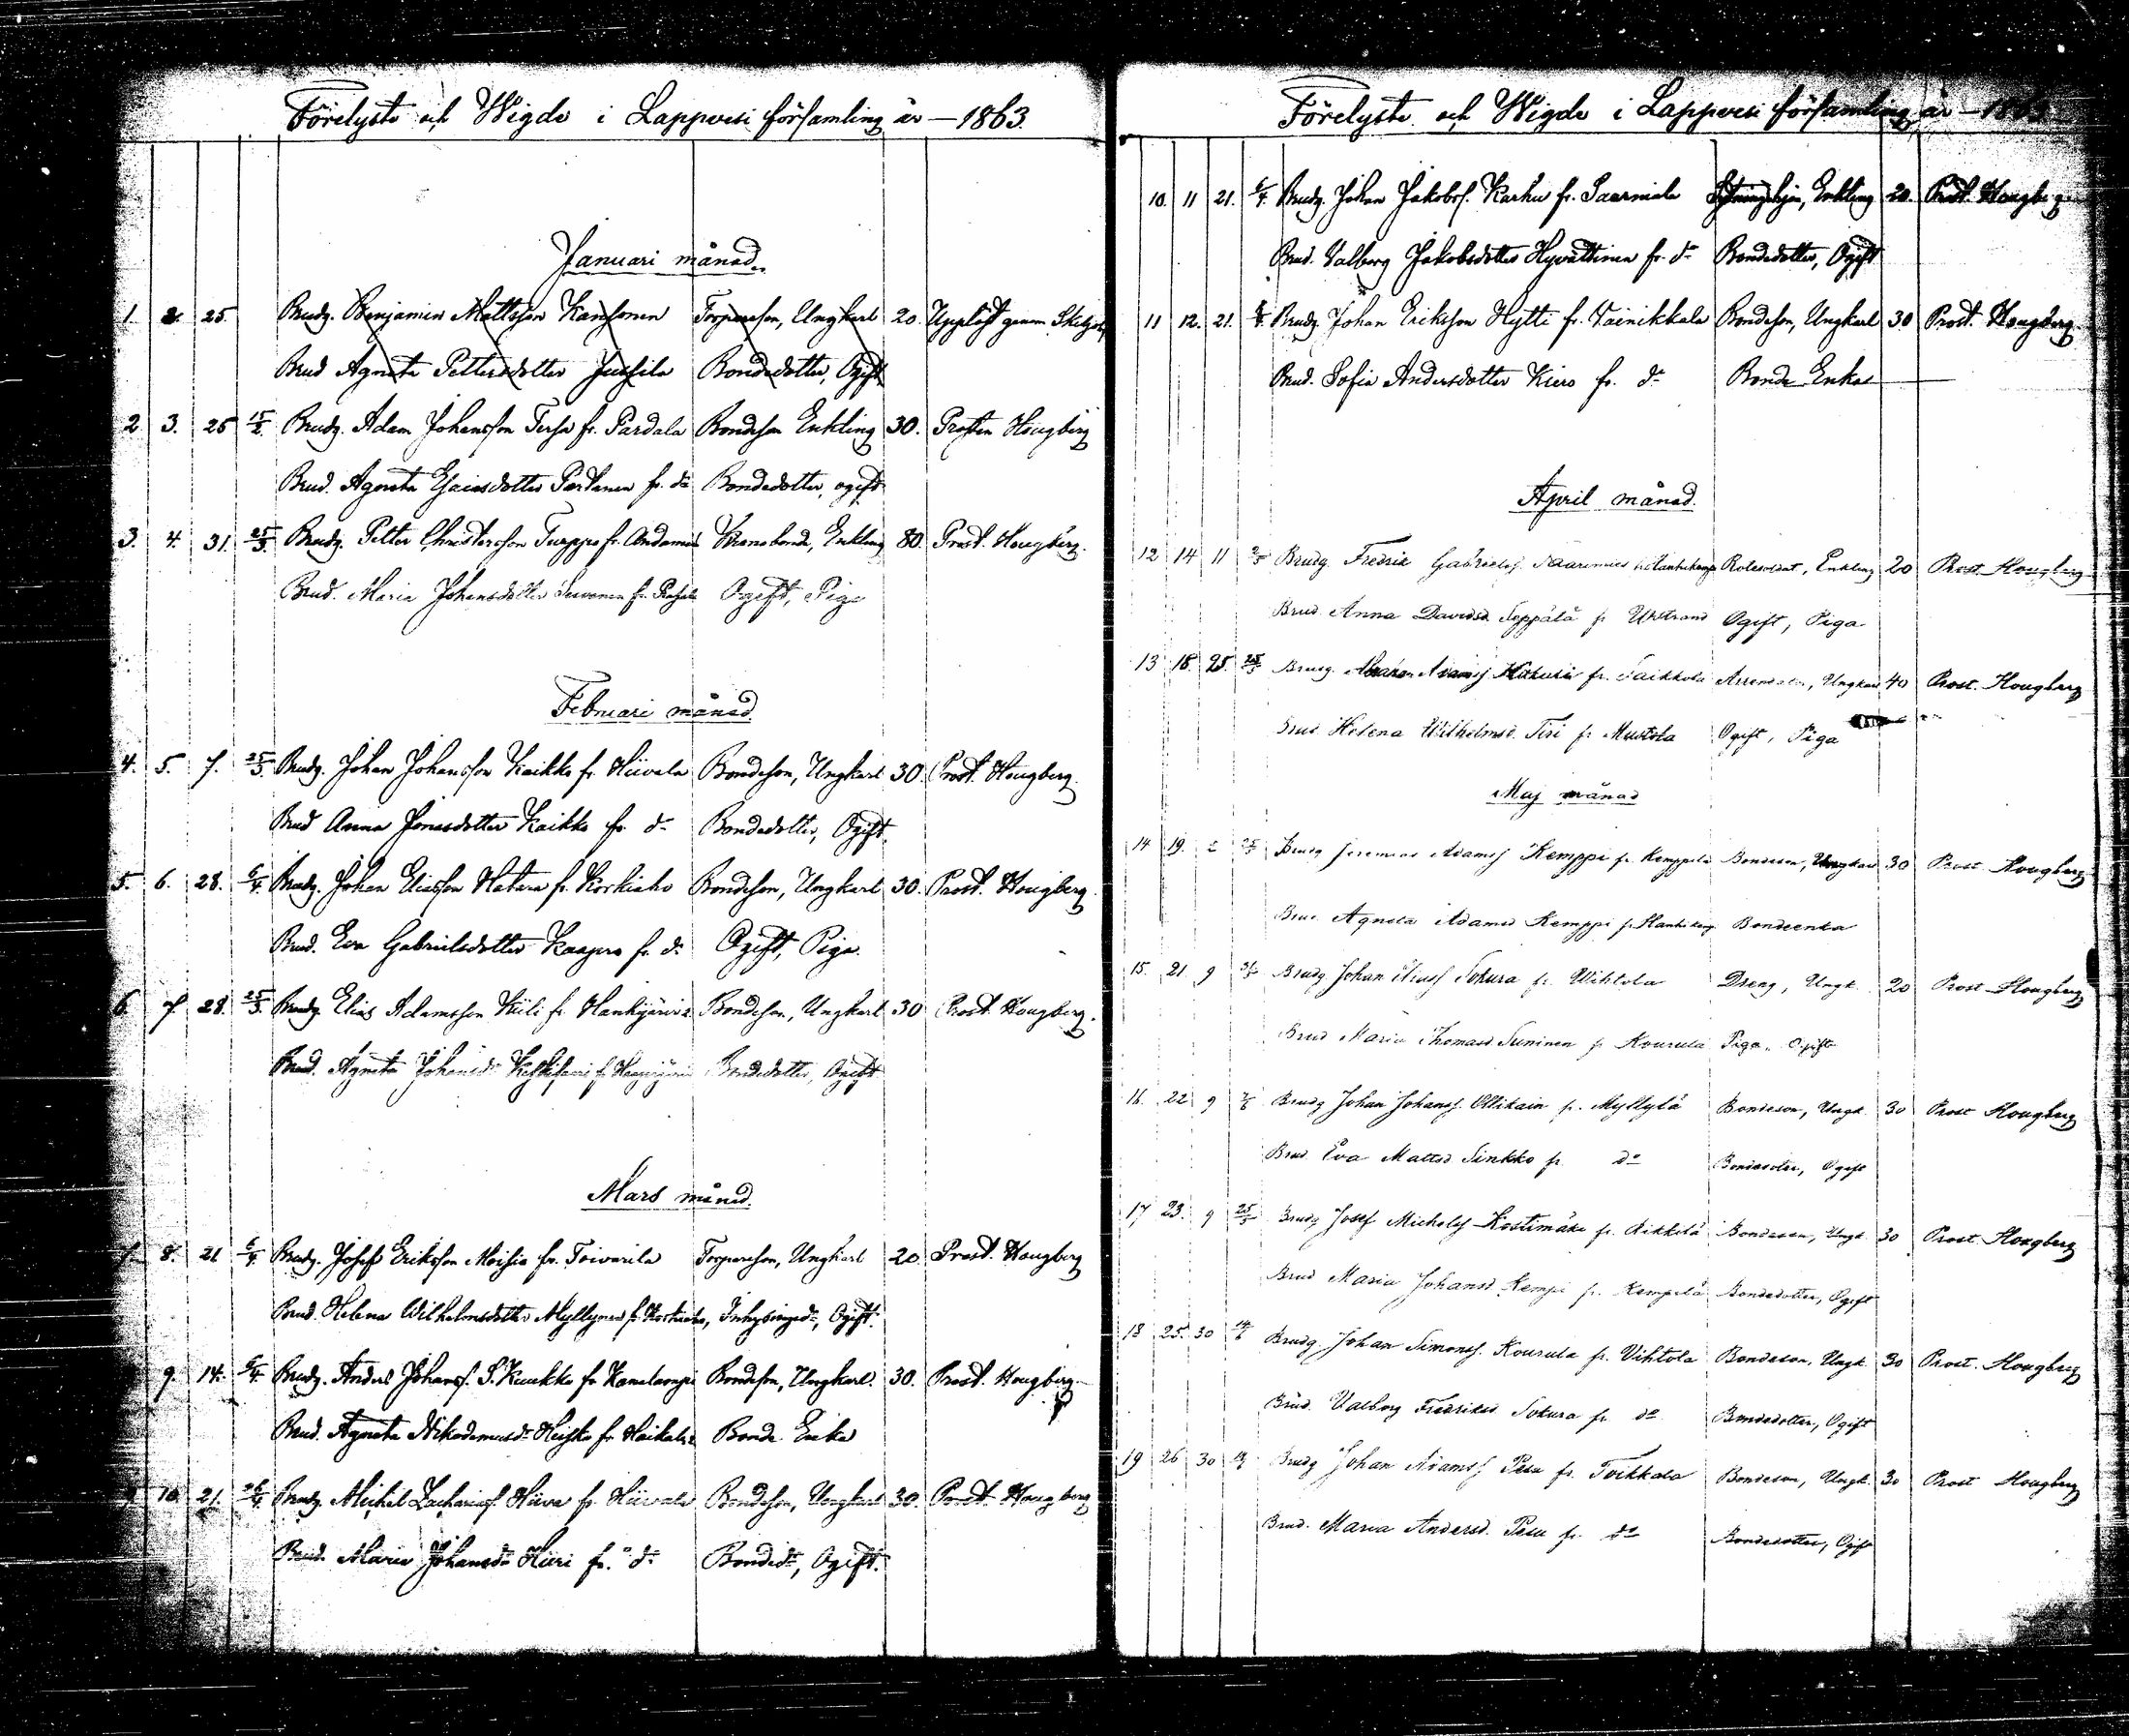 Förelyste och Wigde i Lappvesi församling år – 1863.
Januari månad.
1. 2. 25. Brudg. Benjamin Mattsson Torpareson, Ungkarl 20. Upplöst genom
Brud Agneta Pettersdotter Jussila Bondedotter, Ogift
2. 3. 25 15/2. Brudg. Adam Johansson fr. Pardala Bondeson Enkling 30. Prosten Hougberg
Brud. Agneta Esaiasdotter Partanen fr. do Bondedotter, ogift
3. 4. 31. 25/3. Brudg. Petter Christersson Turppo fr. Enkling 80. Prost. Hougberg.
Brud. Maria Johansdotter fr. Ogift, Piga
Februari månad
4. 5. 7. 25/3. Brudg. Johan Johansson Kaikko fr. Hiivala Bondeson, Ungkarl 30. Prost. Hougberg.
Brud Anna Jonasdotter Kaikko fr. do Bondedotter, Ogift.
5. 6. 28. 6/4. Brudg. Johan Eliasson Hatara fr. Korkiaho Bondeson, Ungkarl 30. Prost. Hougberg.
Brud. Eva Gabrielsdotter Kaapro fr. do Ogift, Piga.
6. 7. 28. 25/3. Brudg. Elias Adamsson Kiili fr. Hanhijärvi Bondeson, Ungkarl 30 Prost. Hougberg.
Brud. Agneta Johansdr fr. Bondedotter, Ogift
Mars månad.
7. 8. 21 6/4. Brudg. Josef Eriksson Moisia fr. Toivarila Torpareson, Ungkarl 20. Prost. Hougberg
Brud. Helena Wilhelmsdotter Myllynen fr. Inhysingedr, Ogift.
9. 14. 6/4. Brudg. Anders Johanss. S. Kuukka fr. Bondeson, Ungkarl. 30. Prost. Hougberg.
Brud. Agneta Nikodemusdr Heisko fr. Haikala Bonde Enka
10. 21. 26/4. Brudg. Michel Zachariass. Hiiva fr. Hiivala Bondeson, Ungkarl 30. Prost. Hougberg
Brud. Maria Johansdr Hiiri fr. do Bondedr, Ogift.
Förelyste och Wigde i Lappvesi församling år – 1863.
10. 11 21. 6/4. Brudg. Johan Jakobss. Karhu fr. Saarniala Enkling 20. Prost. Hougberg.
Brud. Valborg Jakobsdotter Hyvättinen fr. do Bondedotter, Ogift
11 12. 21. Brudg. Johan Eriksson Hytti fr. Vainikkala Bondeson, Ungkarl 30 Prost. Hougberg.
Brud. Sofia Andersdotter Kiero fr. do Bonde Enka
April månad.
12 14 11 Brudg. Fredrik Gabrielss. Saarenmies Rotesoldat, Enkling 20 Prost. Hougberg
Brud. Anna Davidsd. Seppälä fr. Utstrand Ogift, Piga
13 18. 25. 25/5 Brudg. Adamss. fr. Ungkarl 40 Prost. Hougberg
Brud. Helena Wilhelmsd. Tiri fr. Mustola Ogift, Piga
Maj månad
14 19. 2 Brudg. Jeremias Adamss. Kemppi fr. Kemppilä Bondeson, Ungkarl 30 Prost Hougberg
Brud. Agneta Adamsd Kemppi fr. Bondeenka
15. 21. 9 Brudg. Johan Sokura fr. Wihtola Dreng, Ungk. 20 Prost Hougberg
Brud Maria Thomasd Suninen fr. Kourula Piga, Ogift
16. 22 9 Brudg Johan Johanss. Ollikain fr. Myllylä Bondeson, Ungk. 30 Prost Hougberg
Brud. Eva Mattsd Sinkko fr. do Bondedotter, Ogift
17 23. 9 25/5 Brudg Josef Michelss Kostimäki fr. Rikkilä Bondeson, Ungk 30 Prost. Hougberg
Brud Maria Johansd Kempi fr. Kempilä Bondedotter, Ogift
18 25. 30 14/6 Brudg. Johan Simonss. Kourula fr. Vihtola Bondeson, Ungk. 30 Prost. Hougberg
Brud. Valborg Fredriksd Sokura fr. do Bondedotter, Ogift
19 26 30 Brudg Johan Adamss. Pesu fr. Toikkala Bondeson, Ungk. 30 Prost Hougberg
Brud. Maria Andersd. Pesu fr. do Bondedotter, Ogift